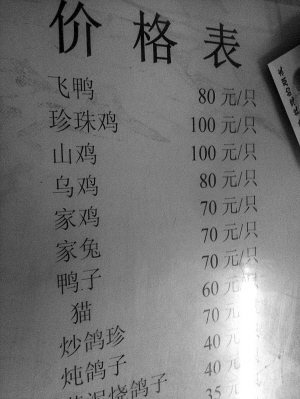 价格表
飞鸭 80 元/只
珍珠鸡 100 元/只
山鸡 100 元/只
乌鸡 80 元/只
家鸡 70 元/只
家兔 70 元/只
鸭子 70 元/只
猫 60 元/只
炒鸽珍 70 元/
炖鸽子 40 元
泥烧鸽子 40 元
35 元